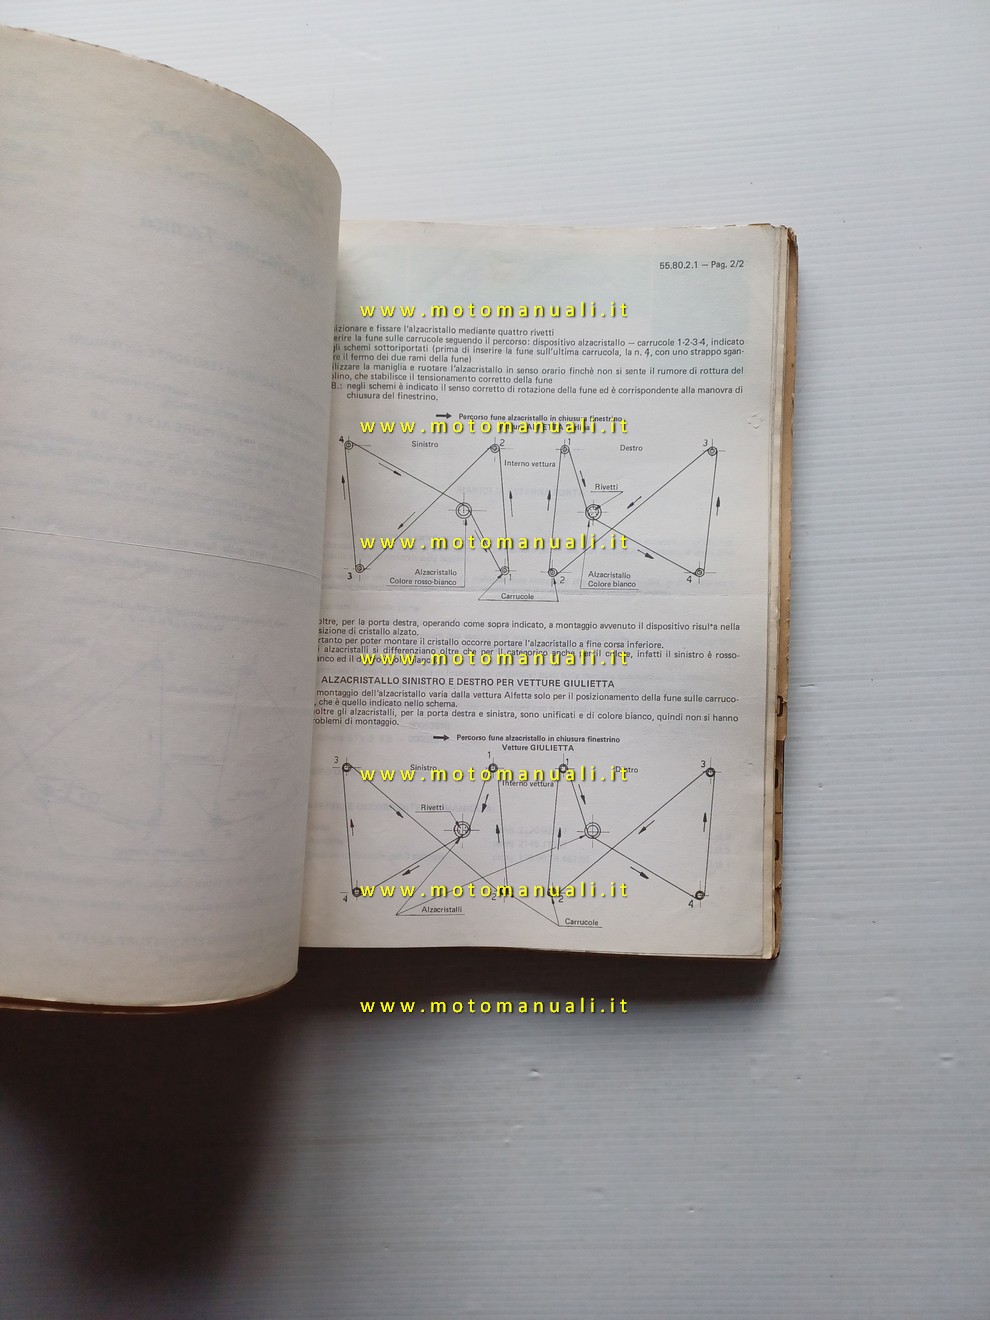 55.80.2.1 — Pag. 2/2
www.motomanuali.it
izionare e fissare l'alzacristallo mediante quattro rivetti
erire la fune sulle carrucole seguendo il percorso: dispositivo alzacristallo — carrucole 1-2-3-4, indicato
gli schemi sottoriportati (prima di inserire la fune sull'ultima carrucola, la n. 4, con uno strappo sgan-
re il fermo dei due rami della fune)
ilizzare la maniglia e ruotare l'alzacristallo in senso orario finchè non si sente il rumore di rottura del
olino, che stabilisce il tensionamento corretto della fune
B.: negli schemi è indicato il senso corretto di rotazione della fune ed è corrispondente alla manovra di
chiusura del finestrino.
Percorso fune alzacristallo in chiusura finestrino
www.motomanuali.it
4 Sinistro 2 1 Destro 3
Interno vettura
Rivetti
www.motomanuali.it
3 Alzacristallo 1 2 Alzacristallo 4
Colore rosso-bianco Colore bianco
Carrucole
oltre, per la porta destra, operando come sopra indicato, a montaggio avvenuto il dispositivo risulta nella
sizione di cristallo alzato.
rtanto per poter montare il cristallo occorre portare l'alzacristallo a fine corsa inferiore.
i alzacristalli si differenziano oltre che per il categorico anche per il colore, infatti il sinistro è rosso-
anco ed il
www.motomanuali.it
ALZACRISTALLO SINISTRO E DESTRO PER VETTURE GIULIETTA
montaggio dell'alzacristallo varia dalla vettura Alfetta solo per il posizionamento della fune sulle carruco-
, che è quello indicato nello schema.
oltre gli alzacristalli, per la porta destra e sinistra, sono unificati e di colore bianco, quindi non si hanno
roblemi di montaggio.
Percorso fune alzacristallo in chiusura finestrino
Vetture GIULIETTA
3 Sinistro 1 1 Destro 3
www.motomanuali.it
Interno vettura
Rivetti
www.motomanuali.it
4 2 2 4
Alzacristalli
Carrucole
www.motomanuali.it